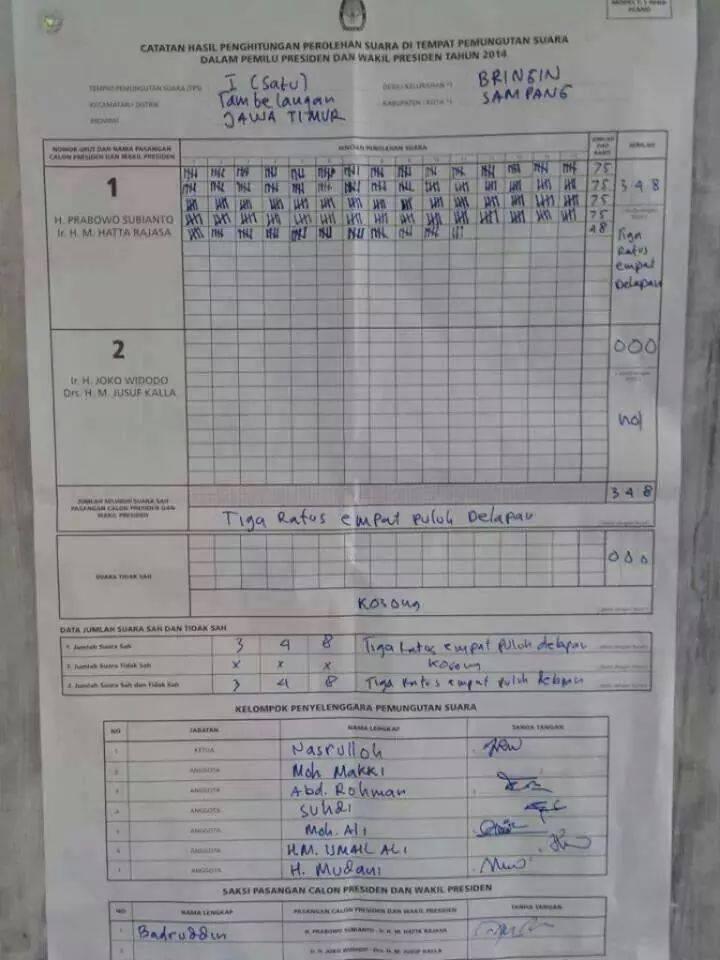 CATATAN HASIL PENGHITUNGAN PEROLEHAN SUARA DI TEMPAT PEMUNGUTAN SUARA
DALAM PEMILU PRESIDEN DAN WAKIL PRESIDEN TAHUN 2014
TEMPAT PEMUNGUTAN SUARA (TPS) I (Satu) DESA / KELURAHAN *) BRINGIN
KECAMATAN / DISTRIK Tambelangan KABUPATEN / KOTA *) SAMPANG
PROVINSI JAWA TIMUR
NOMOR URUT DAN NAMA PASANGAN CALON PRESIDEN DAN WAKIL PRESIDEN
RINCIAN PEROLEHAN SUARA
JUMLAH
1
H. PRABOWO SUBIANTO
Ir. H. M. HATTA RAJASA
75
75
75
75
48
348
Tiga
Ratus
empat
Delapan
2
Ir. H. JOKO WIDODO
Drs. H. M. JUSUF KALLA
000
nol
JUMLAH SELURUH SUARA SAH
PASANGAN CALON PRESIDEN DAN
WAKIL PRESIDEN
348
Tiga Ratus empat puluh Delapan
SUARA TIDAK SAH
000
Kosong
DATA JUMLAH SUARA SAH DAN TIDAK SAH
1. Jumlah Suara Sah 3 4 8 Tiga Ratus empat puluh delapan
2. Jumlah Suara Tidak Sah x x x Kosong
3. Jumlah Suara Sah dan Tidak Sah 3 4 8 Tiga Ratus empat puluh
KELOMPOK PENYELENGGARA PEMUNGUTAN SUARA
NO JABATAN NAMA LENGKAP TANDA TANGAN
1 KETUA Nasrulloh
2 ANGGOTA Moh Makki
3 ANGGOTA Abd. Rohman
4 ANGGOTA Suhdi
5 ANGGOTA Moh. Ali
6 ANGGOTA H.M. ISMAIL ALI
7 ANGGOTA H. Mudani
SAKSI PASANGAN CALON PRESIDEN DAN WAKIL PRESIDEN
NO NAMA LENGKAP PASANGAN CALON PRESIDEN DAN WAKIL PRESIDEN TANDA TANGAN
1 Badruddin H. PRABOWO SUBIANTO - Ir. H. M. HATTA RAJASA
2 Ir. H. JOKO WIDODO - Drs. H. M. JUSUF KALLA